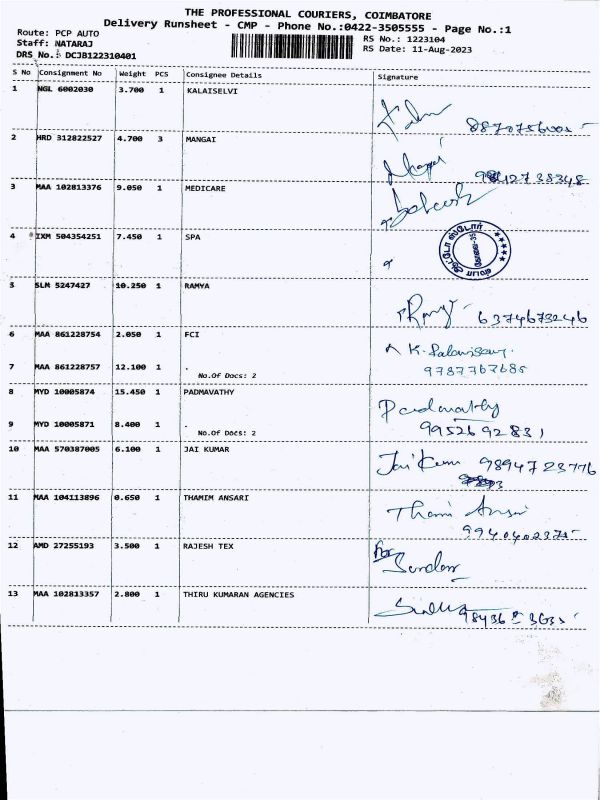 THE PROFESSIONAL COURIERS, COIMBATORE
Delivery Runsheet - CMP - Phone No.:0422-3505555 - Page No.:1
Route: PCP AUTO
Staff: NATARAJ
DRS No.: DCJB122310401
RS No.: 1223104
RS Date: 11-Aug-2023
S No Consignment No Weight PCS Consignee Details Signature
1 NGL 6002030 3.700 1 KALAISELVI
2 HRD 312822527 4.700 3 MANGAI
3 MAA 102813376 9.050 1 MEDICARE
4 IXM 504354251 7.450 1 SPA
5 SLM 5247427 10.250 1 RAMYA
6374673246
6 MAA 861228754 2.050 1 FCI
7 MAA 861228757 12.100 1 .
9787767685
No.Of Docs: 2
8 MYD 10005874 15.450 1 PADMAVATHY
Padmavathy
9 MYD 10005871 8.400 1 .
9952692831
No.Of Docs: 2
10 MAA 570387005 6.100 1 JAI KUMAR
Jai Kumar 9894723776
11 MAA 104113896 0.650 1 THAMIM ANSARI
12 AMD 27255193 3.500 1 RAJESH TEX
For
13 MAA 102813357 2.800 1 THIRU KUMARAN AGENCIES